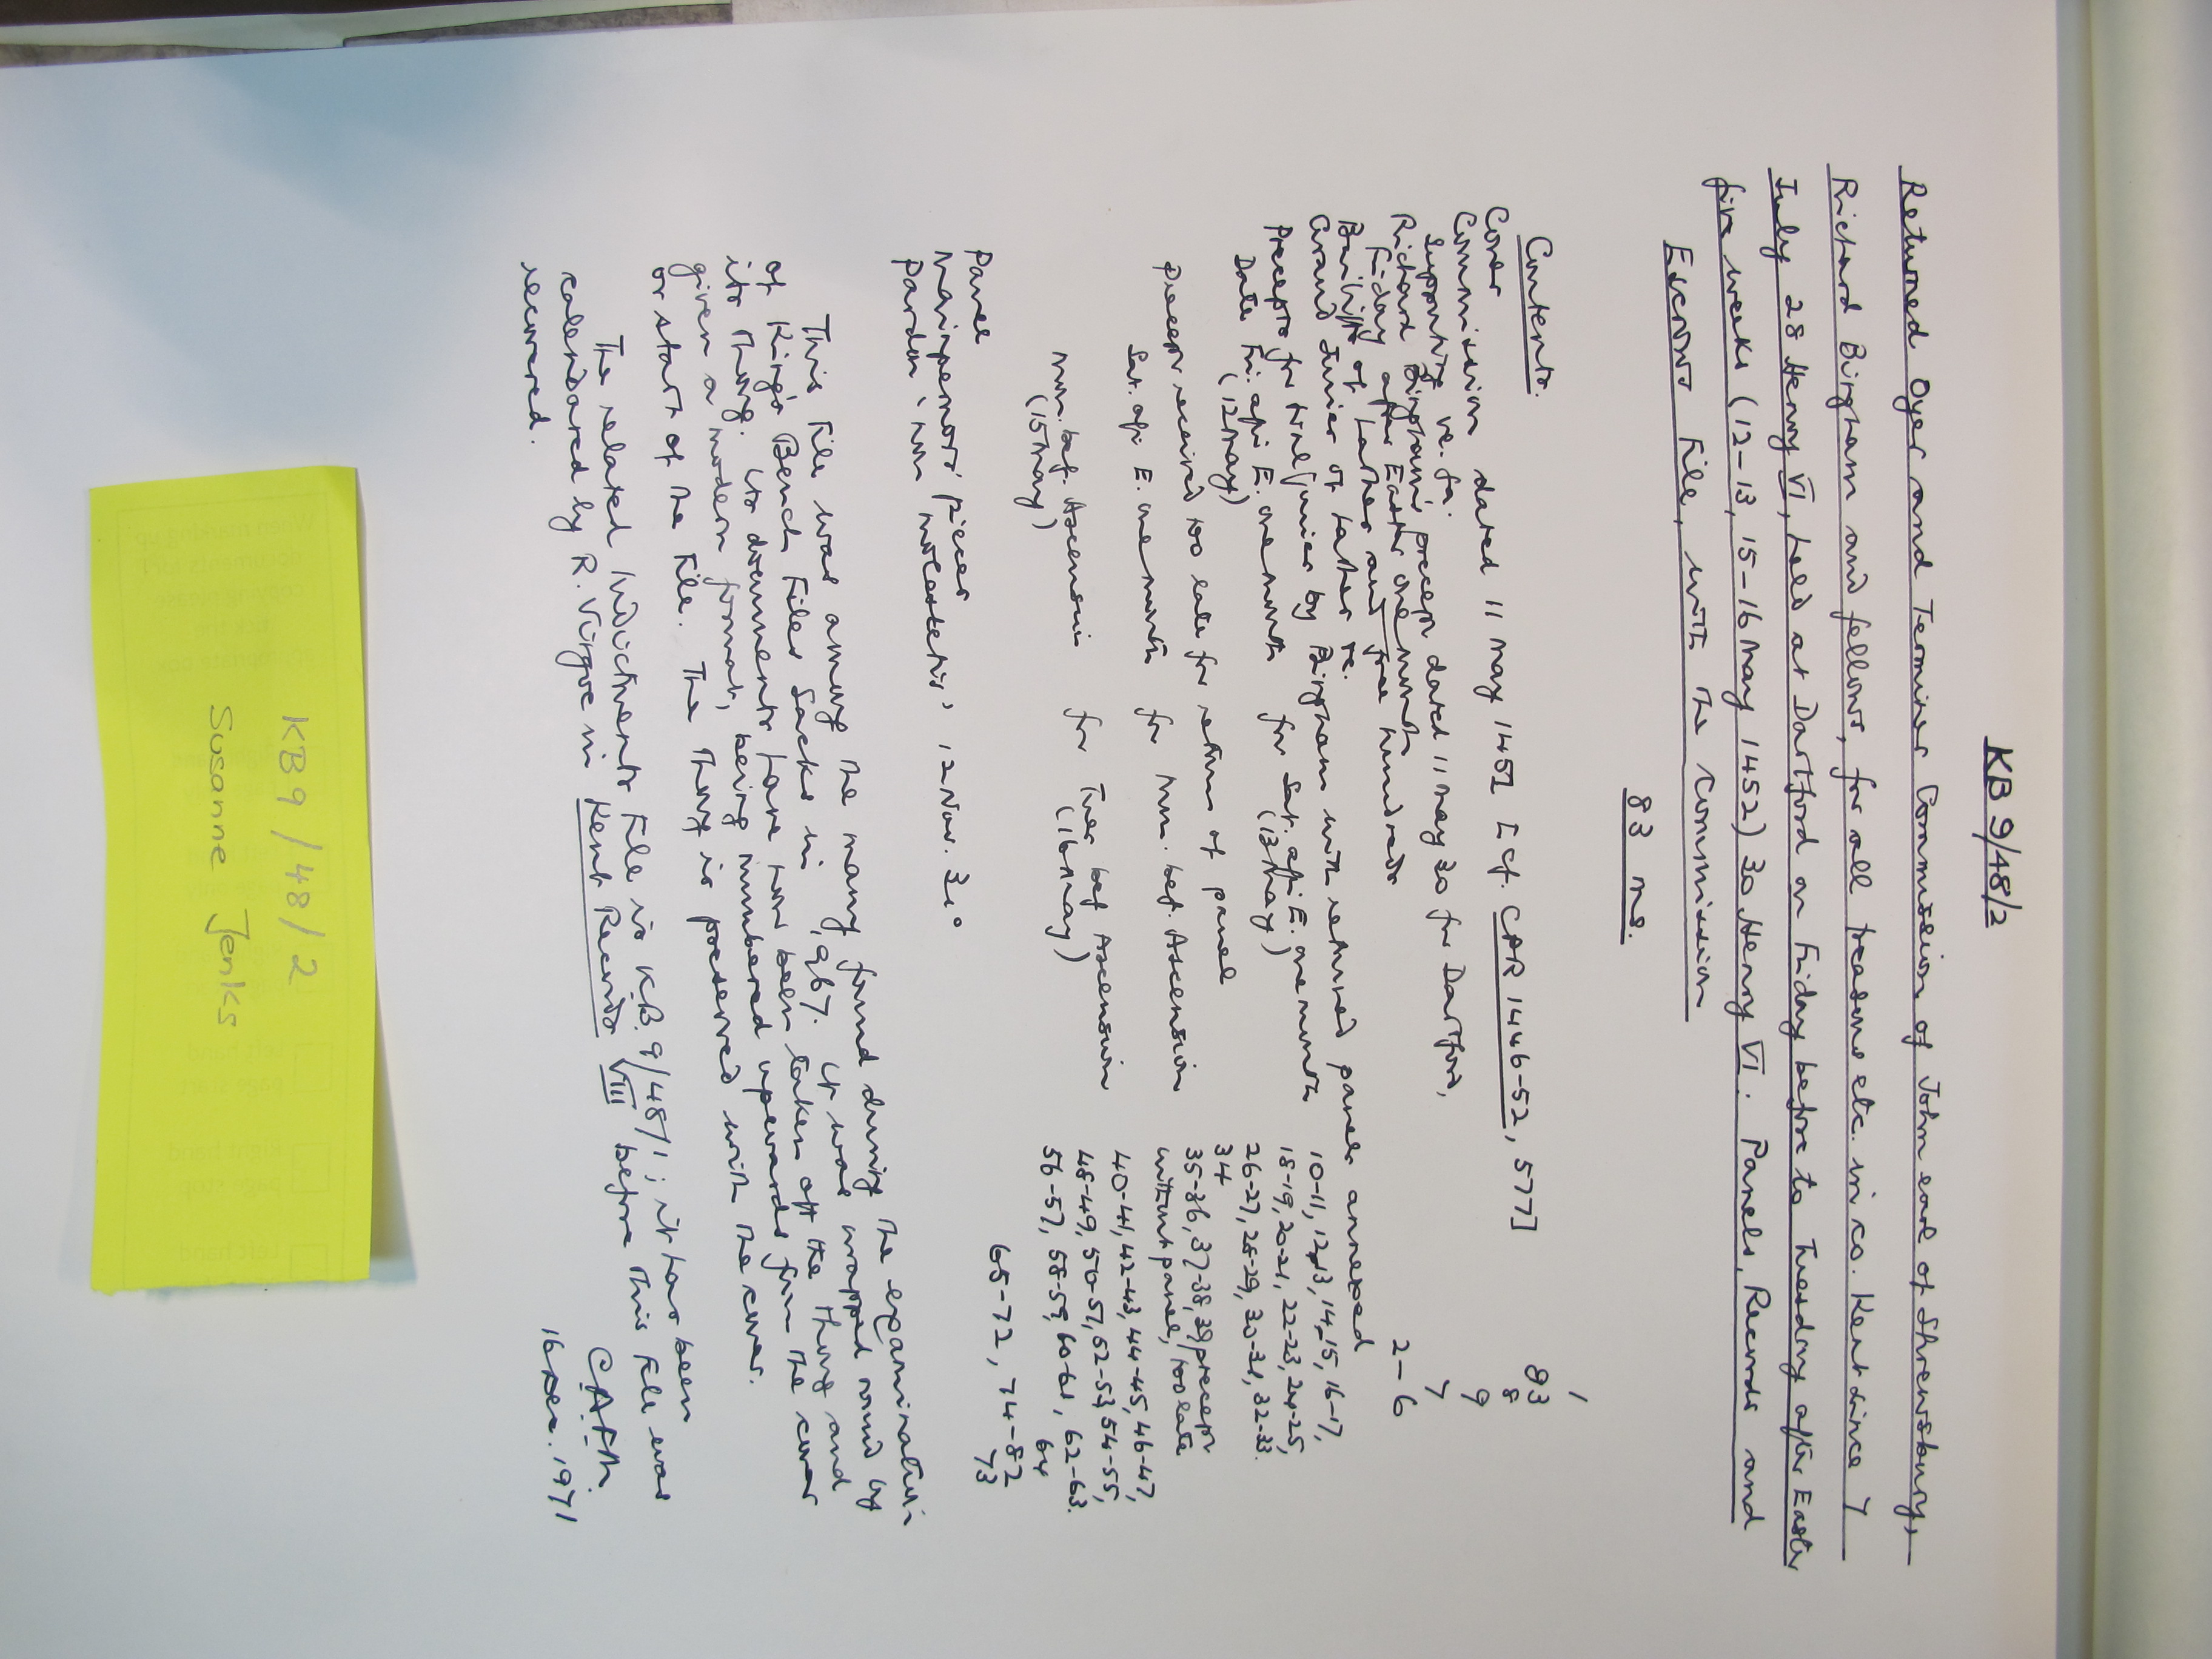 KB 9/48/2
Returned Oyer and Terminer Commission of John earl of Shrewsbury,
Richard Bingham and fellows, for all treasons etc. in co. Kent since 7
July 28 Henry VI, held at Dartford on Friday before to Tuesday after Easter
five weeks (12-13, 15-16 May 1452) 30 Henry VI. Panels, Records and
Escrows File, with the commission
83 ms.
Contents.
Cover 1
Commission dated 11 May 1452 [cf. CPR 1446-52, 577] 83
supporting ve. fa. 8
Richard Bingham's precept dated 11 May 30 for Dartford, 9
Friday after Easter one month 7
Bailiffs of Lathes and free hundreds 2-6
Grand Juries of Lathes etc.
Precepts for trial juries by Bingham with returned panels annexed
Date Fri. aft. E. one month for Sat. aft. E. one month 10-11, 12-13, 14-15, 16-17,
(12 May) (13 May) 18-19, 20-21, 22-23, 24-25,
26-27, 28-29, 30-31, 32-33.
34
Precept received too late for return of panel 35-36, 37-38, 39/precept
without panel, too late
Sat. aft. E. one month for Mon. bef. Ascension 40-41, 42-43, 44-45, 46-47,
48-49, 50-51, 52-53, 54-55,
Mon. bef. Ascension for Tues bef Ascension 56-57, 58-59, 60-61, 62-63.
(15 May) (16 May) 64
Panel
Mainpernors' pieces 65-72, 74-82
Pardon, 'non molestetis', 12 Nov. 31° 73
This file was among the many found during the examination
of King's Bench Files Sacks in 1967. It was wrapped round by
its thong. Its documents have now been taken off the thong and
given a modern format, being numbered upwards from the cover
or start of the file. The thong is preserved with the cover.
The related Indictments File is K.B. 9/48/1; it has been
calendared by R. Virgoe in Kent Records VIII before this file was
recovered.
C.A.F.M.
16 Dec. 1971
KB9/48/2
Susanne Jenks
When marking up
documents for
copying please
tick the
appropriate box
Left hand
page start
Right hand
page stop
Left hand